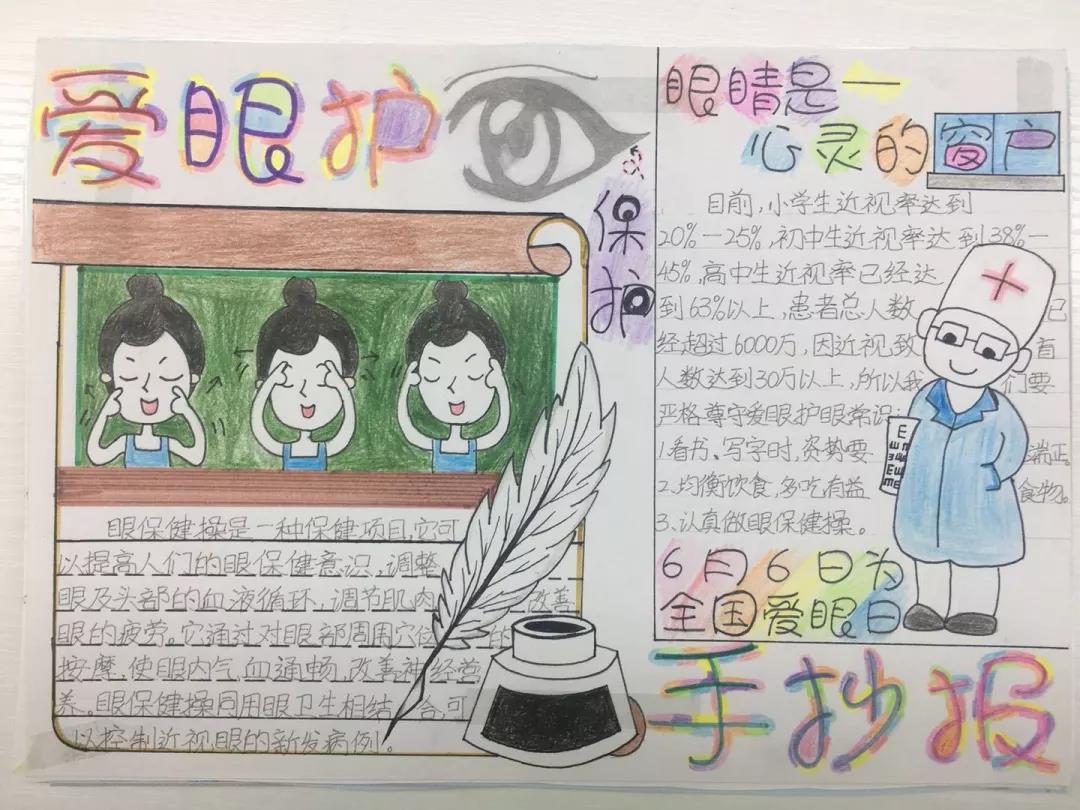 爱眼护
保护
眼保健操是一种保健项目,它可
以提高人们的眼保健意识,调整
眼及头部的血液循环,调节肌肉 改善
眼的疲劳。它通过对眼部周围穴位 的
按摩,使眼内气血通畅,改善神经营
养。眼保健操同用眼卫生相结合,可
以控制近视眼的新发病例。
眼睛是一
心灵的窗户
目前,小学生近视率达到
20%-25%,初中生近视率达到38%-
45%,高中生近视率已经达
到63%以上,患者总人数 已
经超过6000万,因近视致 盲
人数达到30万以上,所以我们要
严格尊守爱眼护眼常识:
1.看书、写字时,资势要端正。
2.均衡饮食,多吃有益食物。
3、认真做眼保健操。
6月6日为
全国爱眼日
手抄报